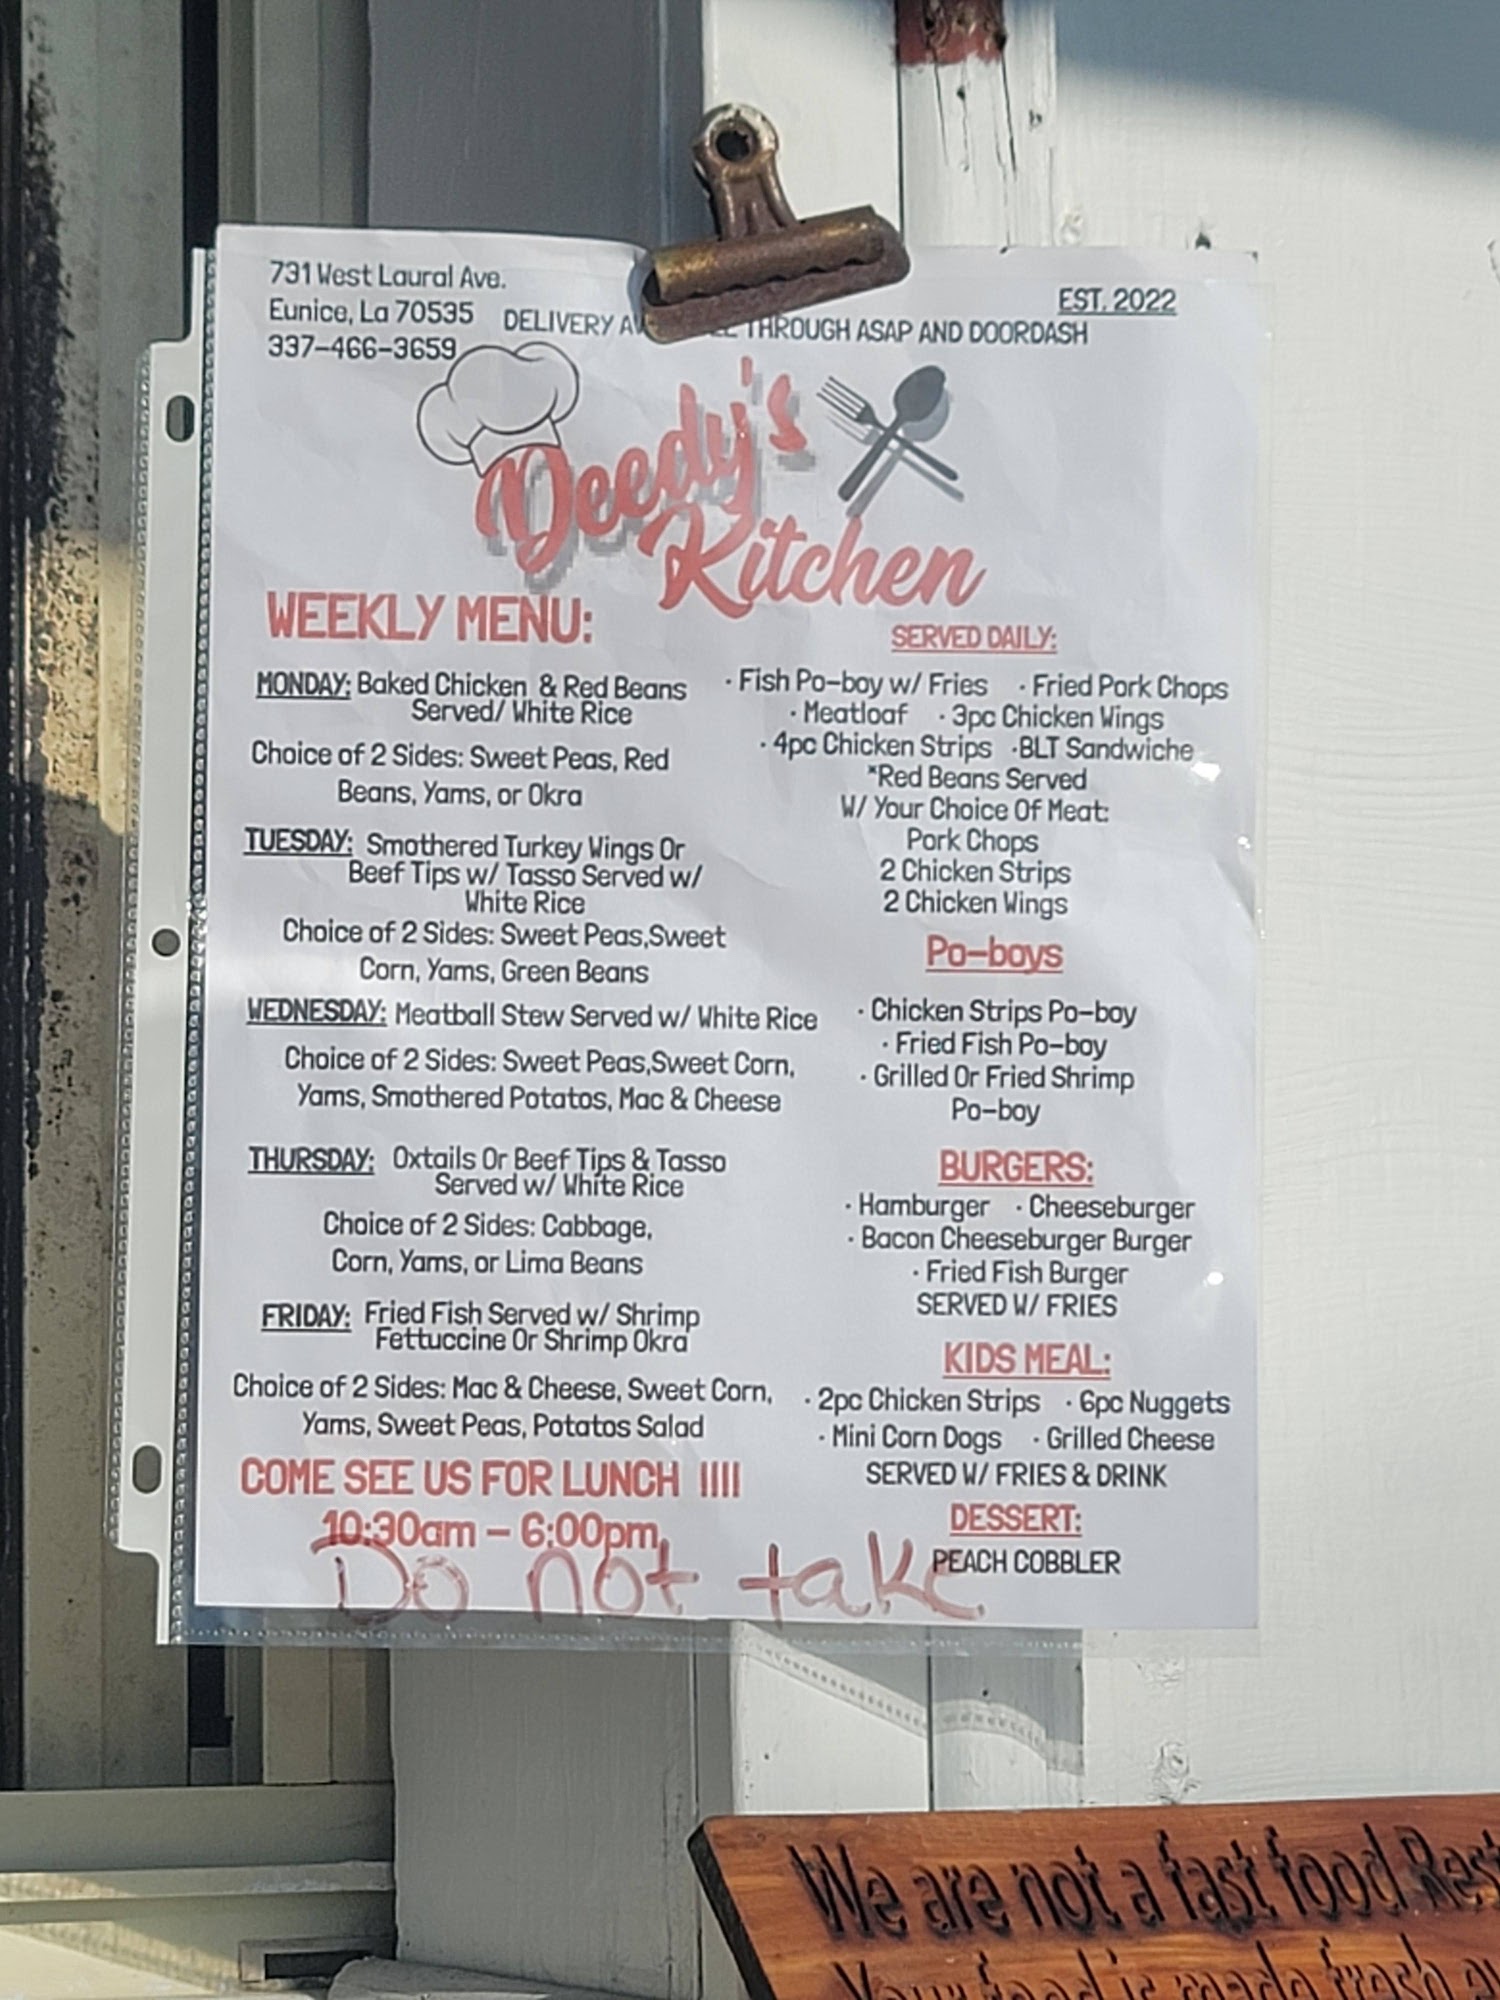 731 West Laural Ave.
Eunice, La 70535
337-466-3659
EST. 2022
DELIVERY THROUGH ASAP AND DOORDASH
Deedy's
Kitchen
WEEKLY MENU:
MONDAY: Baked Chicken & Red Beans
Served/ White Rice
Choice of 2 Sides: Sweet Peas, Red
Beans, Yams, or Okra
TUESDAY: Smothered Turkey Wings Or
Beef Tips w/ Tasso Served w/
White Rice
Choice of 2 Sides: Sweet Peas,Sweet
Corn, Yams, Green Beans
WEDNESDAY: Meatball Stew Served w/ White Rice
Choice of 2 Sides: Sweet Peas,Sweet Corn,
Yams, Smothered Potatos, Mac & Cheese
THURSDAY: Oxtails Or Beef Tips & Tasso
Served w/ White Rice
Choice of 2 Sides: Cabbage,
Corn, Yams, or Lima Beans
FRIDAY: Fried Fish Served w/ Shrimp
Fettuccine Or Shrimp Okra
Choice of 2 Sides: Mac & Cheese, Sweet Corn,
Yams, Sweet Peas, Potatos Salad
COME SEE US FOR LUNCH !!!!
10:30am – 6:00pm
Do not take
SERVED DAILY:
· Fish Po-boy w/ Fries · Fried Pork Chops
· Meatloaf · 3pc Chicken Wings
· 4pc Chicken Strips ·BLT Sandwiche
*Red Beans Served
W/ Your Choice Of Meat:
Pork Chops
2 Chicken Strips
2 Chicken Wings
Po-boys
· Chicken Strips Po-boy
· Fried Fish Po-boy
· Grilled Or Fried Shrimp
Po-boy
BURGERS:
· Hamburger · Cheeseburger
· Bacon Cheeseburger Burger
· Fried Fish Burger
SERVED W/ FRIES
KIDS MEAL:
· 2pc Chicken Strips · 6pc Nuggets
· Mini Corn Dogs · Grilled Cheese
SERVED W/ FRIES & DRINK
DESSERT:
PEACH COBBLER
We are not a fast food
Your food is made fresh